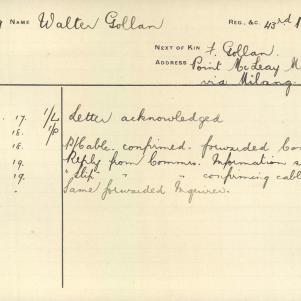 NAME Walter Gollan REG., &C. 43rd
NEXT OF KIN F. Gollan.
ADDRESS Point McLeay M
via Milang.
17. 1/L Letter acknowledged
18. 1/P
18. B/Cable. confirmed. forwarded Com
19. Reply from Comms. Information s
19. "Slip" " " confirming cabl
Same forwarded Enquirer.